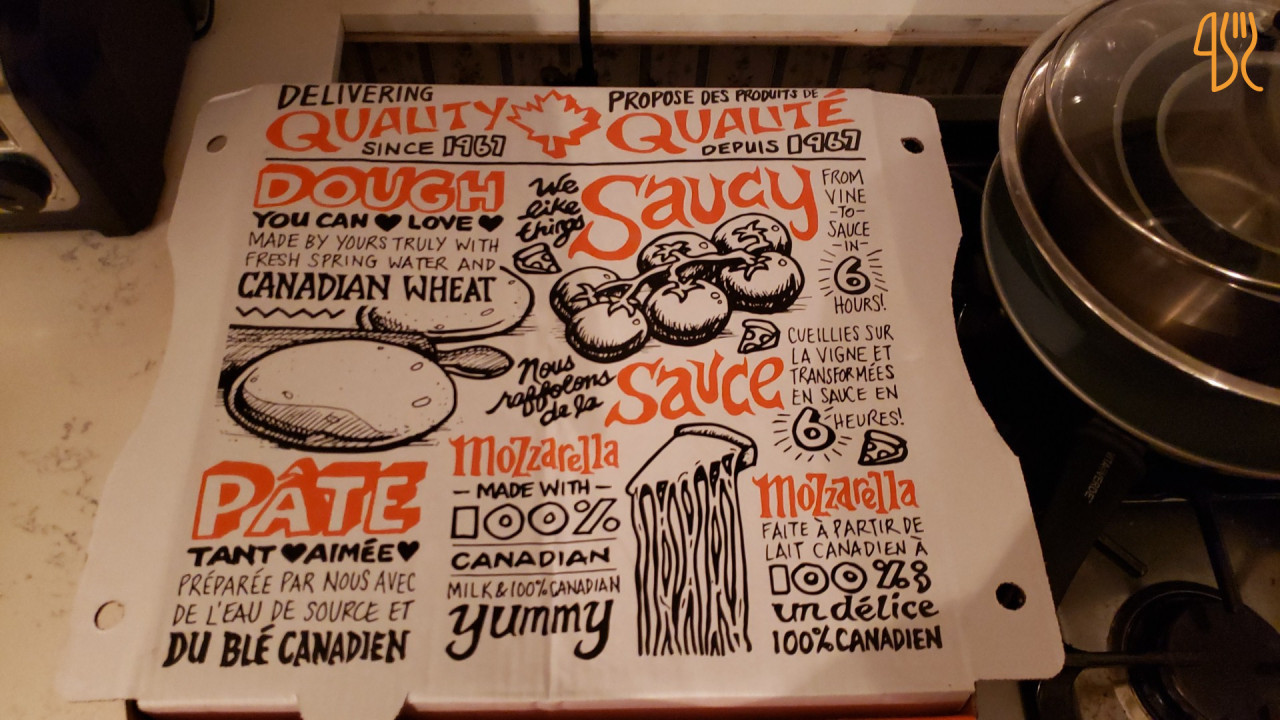 DELIVERING
QUALITY
SINCE 1967
PROPOSE DES PRODUITS DE
QUALITÉ
DEPUIS 1967
DOUGH
YOU CAN ♥ LOVE ♥
MADE BY YOURS TRULY WITH
FRESH SPRING WATER AND
CANADIAN WHEAT
We
like
things
Saucy
FROM
VINE
-TO-
SAUCE
-IN-
6
HOURS!
Nous
raffolons
de la
Sauce
CUEILLIES SUR
LA VIGNE ET
TRANSFORMÉES
EN SAUCE EN
6 HEURES!
PÂTE
TANT ♥ AIMÉE ♥
PRÉPARÉE PAR NOUS AVEC
DE L'EAU DE SOURCE ET
DU BLÉ CANADIEN
mozzarella
- MADE WITH -
100%
CANADIAN
MILK & 100% CANADIAN
yummy
mozzarella
FAITE À PARTIR DE
LAIT CANADIEN À
100% &
un délice
100% CANADIEN